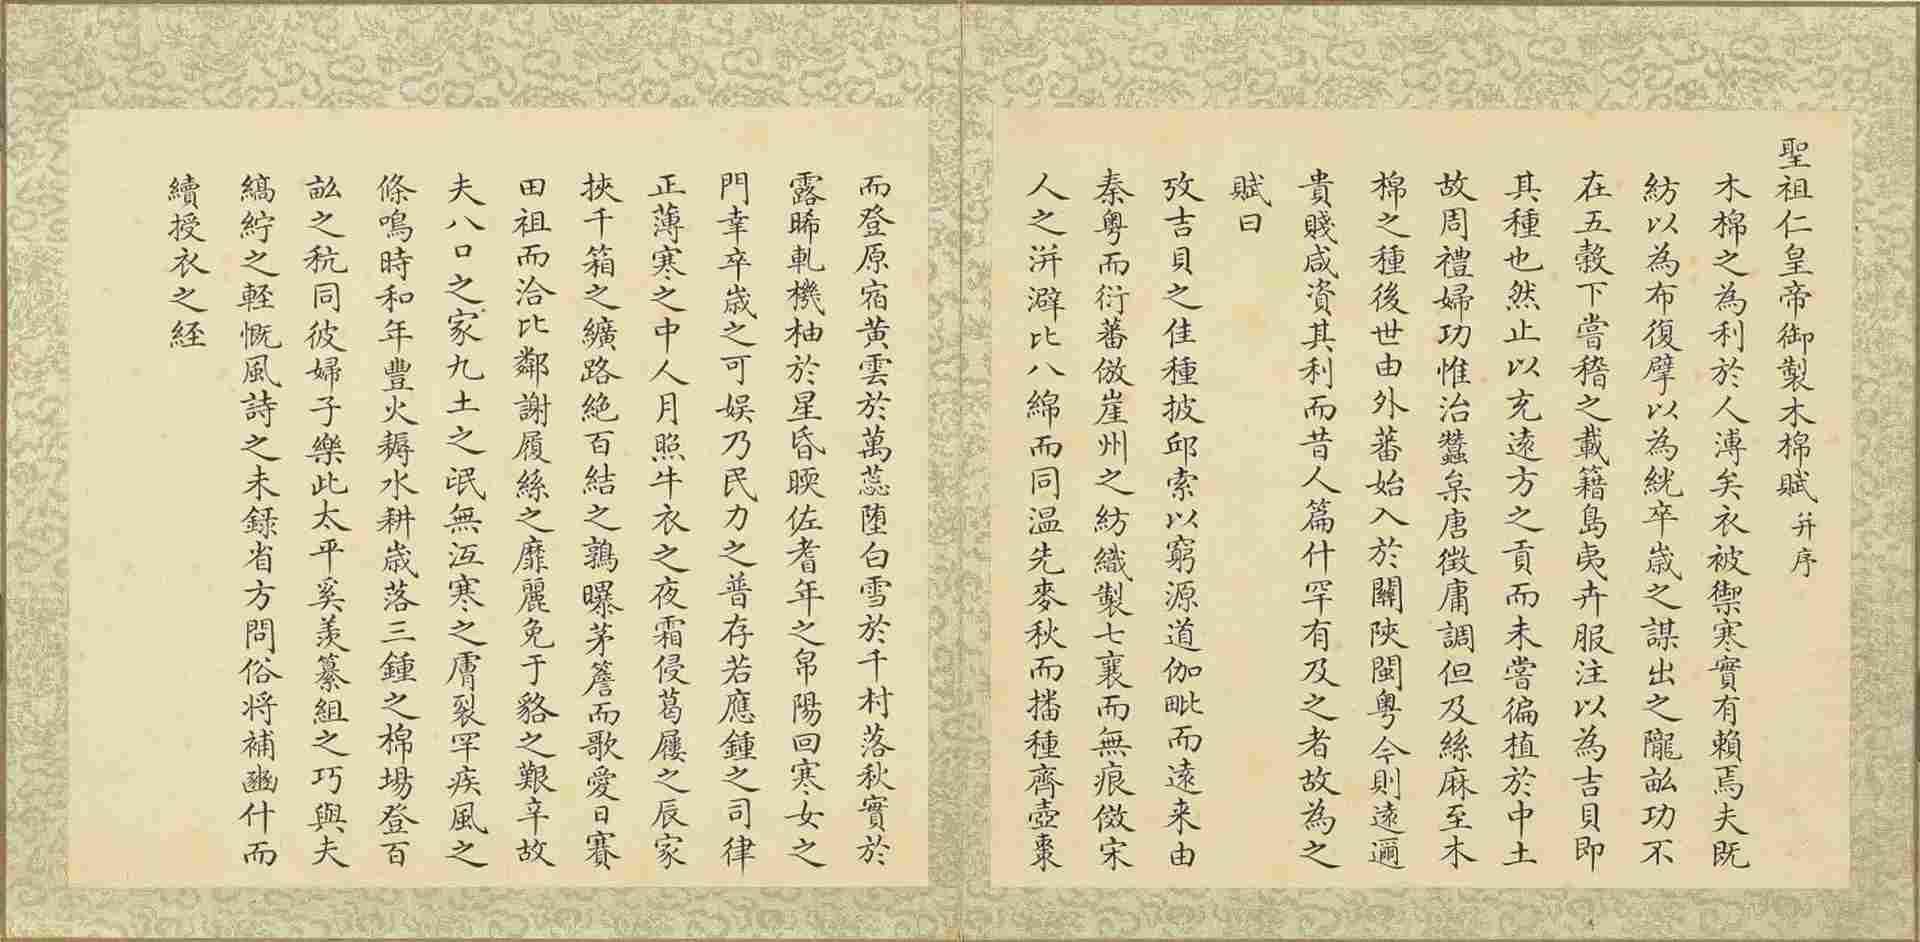 聖祖仁皇帝御製木棉賦并序
木棉之為利於人溥矣衣被禦寒實有賴焉夫既
紡以為布復擘以為絖卒歳之謀出之隴畝功不
在五穀下嘗稽之載籍島夷卉服注以為吉貝即
其種也然止以充遠方之貢而未嘗徧植於中土
故周禮婦功惟治蠶枲唐徴庸調但及絲麻至木
棉之種後世由外蕃始入於關陝閩粵今則遠邇
貴賤咸資其利而昔人篇什罕有及之者故為之
賦曰
攷吉貝之佳種披邱索以窮源道伽毗而遠来由
秦粵而衍蕃倣崖州之紡織製七襄而無痕儆宋
人之洴澼比八綿而同温先麥秋而播種齊壺棗
而登原宿黄雲於萬蕊堕白雪於千村落秋實於
露晞軋機柚於星昏暎佐耆年之帛陽回寒女之
門幸卒歳之可娱乃民力之普存若應鍾之司律
正薄寒之中人月照牛衣之夜霜侵葛屨之辰家
挾千箱之纊路絶百結之鶉曝茅簷而歌愛日賽
田祖而洽比鄰謝履絲之靡麗免于貉之艱辛故
夫八口之家九土之氓無沍寒之膚裂罕疾風之
條鳴時和年豐火耨水耕歳落三鍾之棉場登百
畝之秔同彼婦子樂此太平奚羨纂組之巧與夫
縞紵之輕慨風詩之未録省方問俗将補豳什而
續授衣之経